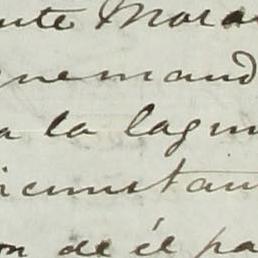 ute Mora
nemand
a la lagun
ircunstan
on de él pa